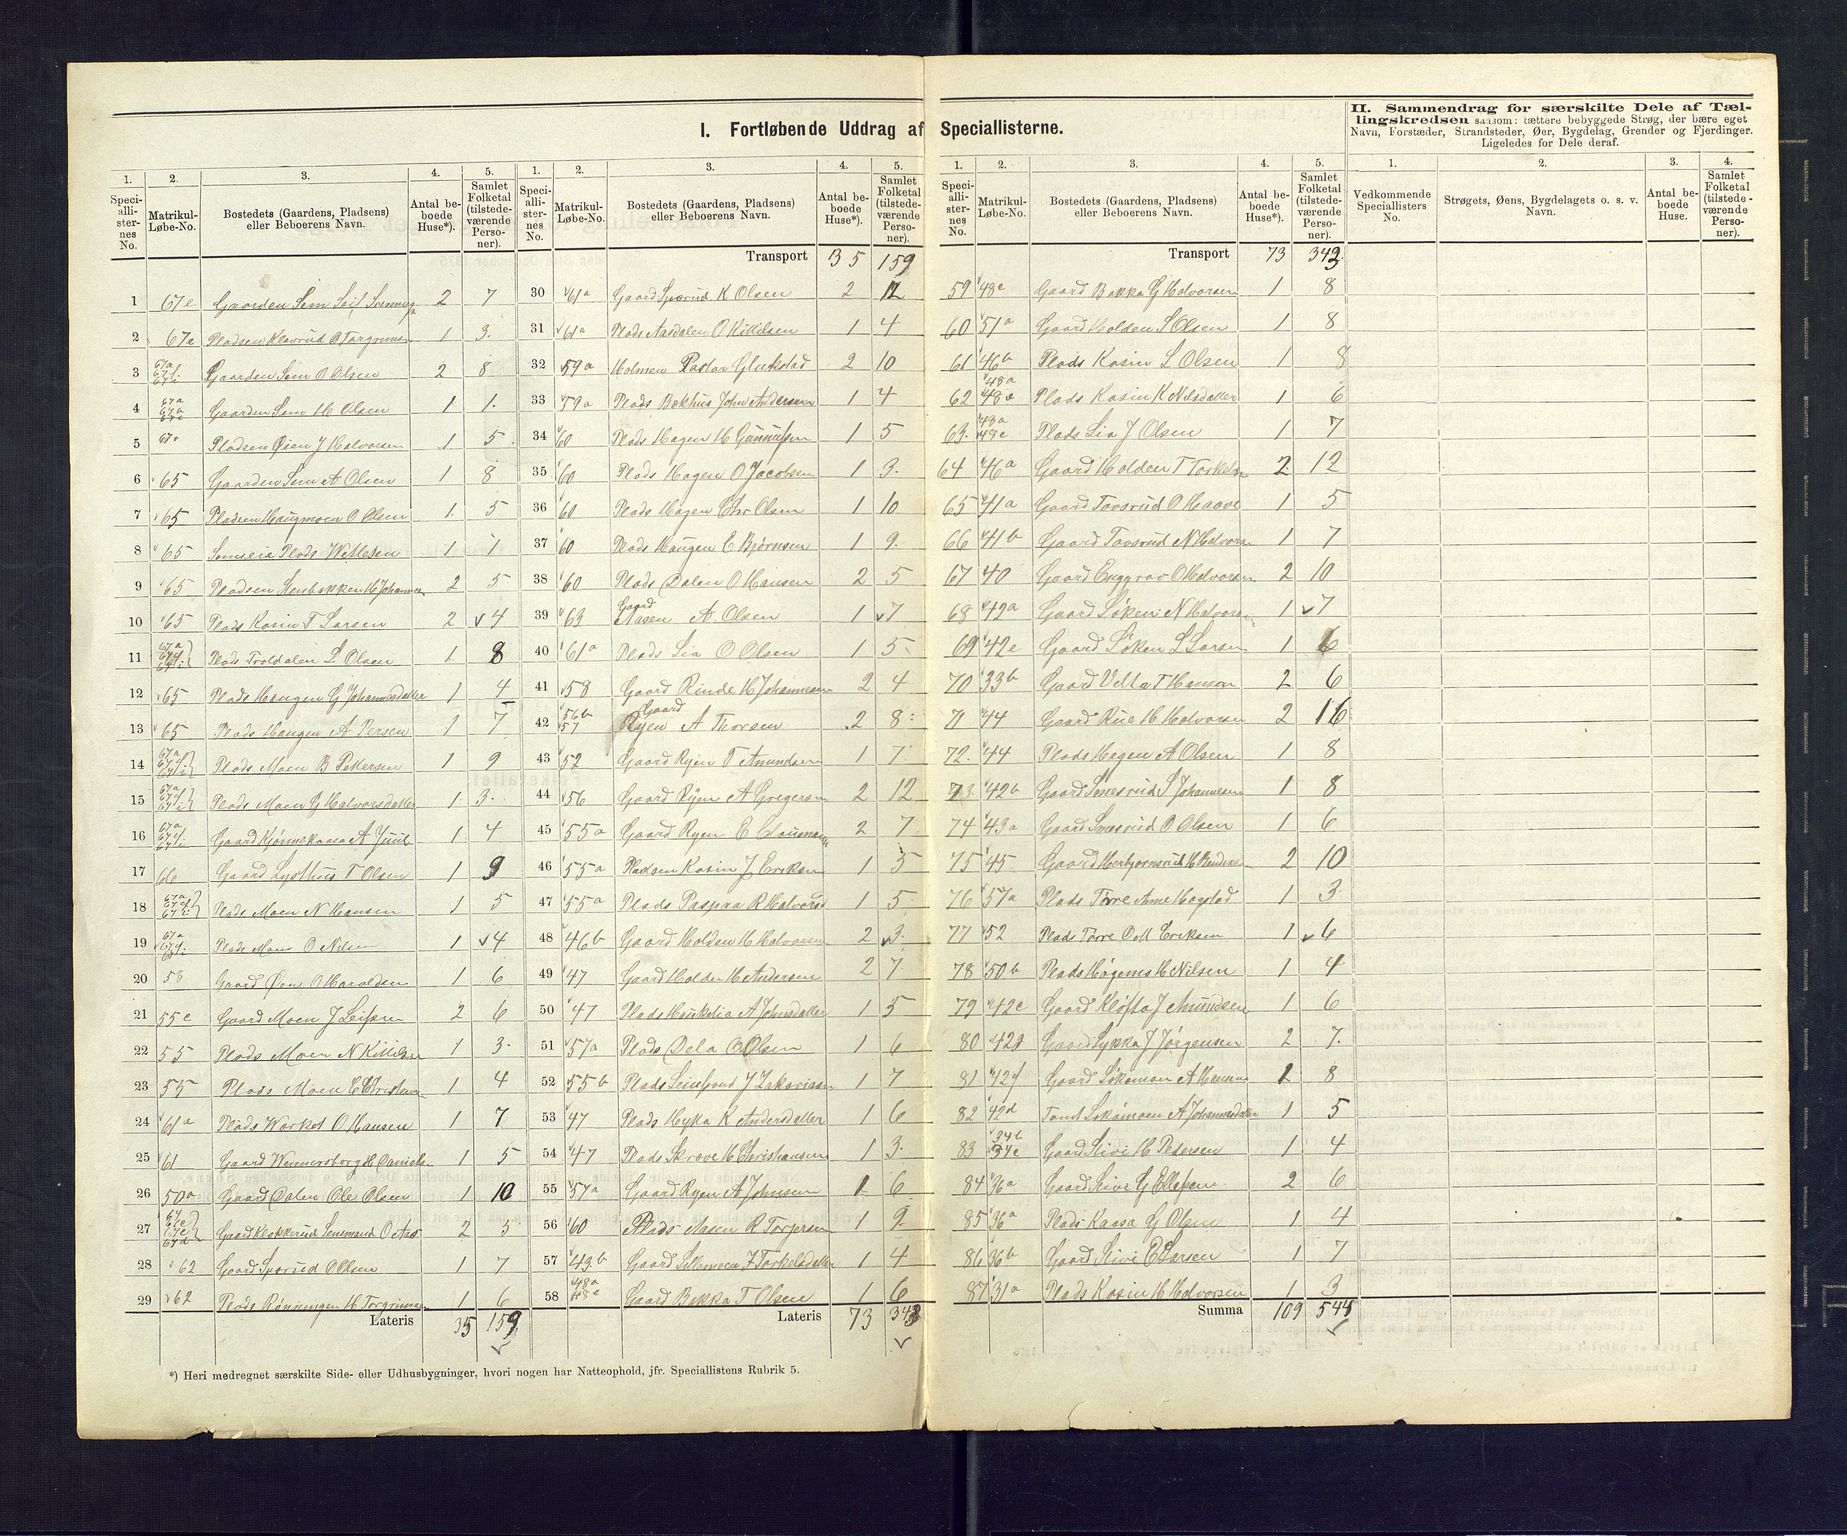 I. Fortløbende Uddrag af Speciallisterne.
II. Sammendrag for særskilte Dele af Tæl-
lingskredsen saasom: tættere bebyggede Strøg, der bære eget
Navn, Forstæder, Strandsteder, Øer, Bygdelag, Grender og Fjerdinger.
Ligeledes for Dele deraf.
1. 2. 3. 4. 5. 1. 2. 3. 4. 5. 1. 2. 3. 4. 5. 1. 2. 3. 4.
Speciallisternes No. Matrikul-Løbe-No. Bostedets (Gaardens, Pladsens) eller Beboerens Navn. Antal beboede Huse*). Samlet Folketal (tilstedeværende Personer).
Speciallisternes No. Matrikul-Løbe-No. Bostedets (Gaardens, Pladsens) eller Beboerens Navn. Antal beboede Huse*). Samlet Folketal (tilstedeværende Personer).
Speciallisternes No. Matrikul-Løbe-No. Bostedets (Gaardens, Pladsens) eller Beboerens Navn. Antal beboede Huse*). Samlet Folketal (tilstedeværende Personer).
Vedkommende Speciallisters No. Strøgets, Øens, Bygdelagets o. s. v. Navn. Antal beboede Huse. Samlet Folketal (tilstedeværende Personer).
1 67e Gaarden Sem 2 7
2 67e Pladsen Klevrud O Torgrimsen 1 3.
3 Gaarden Sem O Olsen 2 8
4 Gaarden Sem H Olsen 1 1.
5 Pladsen Øien J Halvorsen 1 5
6 65 Gaarden Sem A Olsen 1 8
7 65 Pladsen Haugmoen O Olsen 1 5
8 65 Semseia Plads 1 1
9 65 Pladsen H Johannesen 2 5
10 65 Plads Kosin T Larsen 2 4
11 Plads Troldalen L Olsen 1 8
12 65 Plads Haugen G Johannesdatter 1 4
13 65 Plads Haugen A Persen 1 7
14 Plads Moen B Pettersen 1 9
15 Plads Moen G Halvorsdatter 1 3.
16 Gaard A Juul 1 4
17 66 Gaard Lysthus T Olsen 1 9
18 Plads Moen N Hansen 1 5
19 Plads Moen O Nilsen 1 4
20 Gaard Øen O Haroldsen 1 6
21 55c Gaard Moen J 2 6
22 55 Plads Moen N Kittilsen 1 3.
23 55 Plads Moen E Christensen 1 4
24 61a Plads Værket O Hansen 1 7
25 61 Gaard Wennersborg H Danielsen 1 5
26 50a Gaard Dalen Ole Olsen 1 10
27 Gaard Klokkerud Lensmand O Aas 2 5
28 62 Gaard Sporud O Olsen 1 7
29 62 Plads Rønningen H Torgrimsen 1 6
Lateris 35 159
Transport 35 159
30 61a Gaard Sporud K Olsen 2 12
31 61a Plads Aasdalen O Kittilsen 1 4
32 59a Holmen Pastor Gluckstad 2 10
33 59a Plads Bakhus John Andersen 1 4
34 60 Plads Hagen H Gunnufsen 1 5
35 60 Plads Hagen O Jacobsen 1 3.
36 60 Plads Hagen Chr Olsen 1 10
37 60 Plads Haugen E Bjørnsen 1 9.
38 60 Plads Dalen O Hansen 2 5
39 63 Gaard Aasen A. Olsen 1 7
40 61a Plads Lia O Olsen 1 5
41 58 Gaard Rinde H Johannesen 2 4
42 56b 57 Gaard Ryen A Thorsen 2 8
43 52 Gaard Ryen T Amundsen 1 7
44 56 Gaard Ryen A Gregersen 2 12
45 55a Gaard Ryen E 2 7
46 55a Pladsen Kosin J Eriksen 1 5
47 55a Plads Paspaa R Halvorsd 1 5
48 46b Gaard Holden H Halvorsen 2 3.
49 47 Gaard Holden H Andersen 2 7.
50 47 Plads Haukelia A Johnsdatter 1 5
51 57a Plads Dela O Olsen 1 6
52 55b Plads J Zakariasen 1 7
53 47 Plads Hyka K Andersdatter 1 6
54 47 Plads Skrove H Christiansen 1 3.
55 57a Gaard Ryen A Johnsen 1 6
56 60 Plads Aasen R Torjersen 1 9
57 43b Gaard J Torkelsdatter 1 4
58 48a 48c Gaard Bakka T Olsen 1 6
Lateris 73 343
Transport 73 343.
59 48c Gaard Bakka G Halvorsen 1 8
60 51a Gaard Holden S Olsen 1 8
61 46b Plads Kosin L Olsen 1 8
62 48a 48c Plads Kosin K Nilsdatter 1 6
63. 48c Plads Lia J Olsen 1 7
64 46a Gaard Holden T Torkelsen 2 12
65 41a Gaard Tovsrud O Haave 1 5
66 41b Gaard Tovsrud N Halvorsen 1 7
67 40 Gaard Enggrav O Halvorsen 2 10
68 42a Gaard Løken N Halvorsen 1 7
69 42e Gaard Løken L Larsen 1 6
70 33b Gaard Velta T Hansen 2 6
71 44 Gaard Rue H Halvorsen 2 16
72. 44 Plads Hagen A Olsen 1 8
73 42b Gaard Smesrud S Johannesen 1 8
74 43a Gaard Smesrud O Olsen 1 6
75 45 Gaard Herbjørnsrud H 2 10
76 57a Plads Torre Arne Hagstad 1 3.
77 52 Plads Torre Eriksen 1 6
78 50b Plads Høgemo H Nilsen 1 4
79 42c Gaard Kløfta J Amundsen 1 6
80 42d Gaard Lykka J Jørgensen 2 7.
81 42f Gaard Løkamoen A Hansen 2 8
82 42d Tomt Løkamoen A Johannesdatter 1 5
83 34b 34c Gaard Sivi H Pedersen 1 4
84 36a Gaard Sivi G Ellefsen 2 6
85 36a Plads Kaasa G Olsen 1 4
86 36b Gaard Sivi E Larsen 1 7
87 31a Plads Kosin H Halvorsen 1 3
Summa 109 544
*) Heri medregnet særskilte Side- eller Udhusbygninger, hvori nogen har Natteophold, jfr. Speciallistens Rubrik 5.